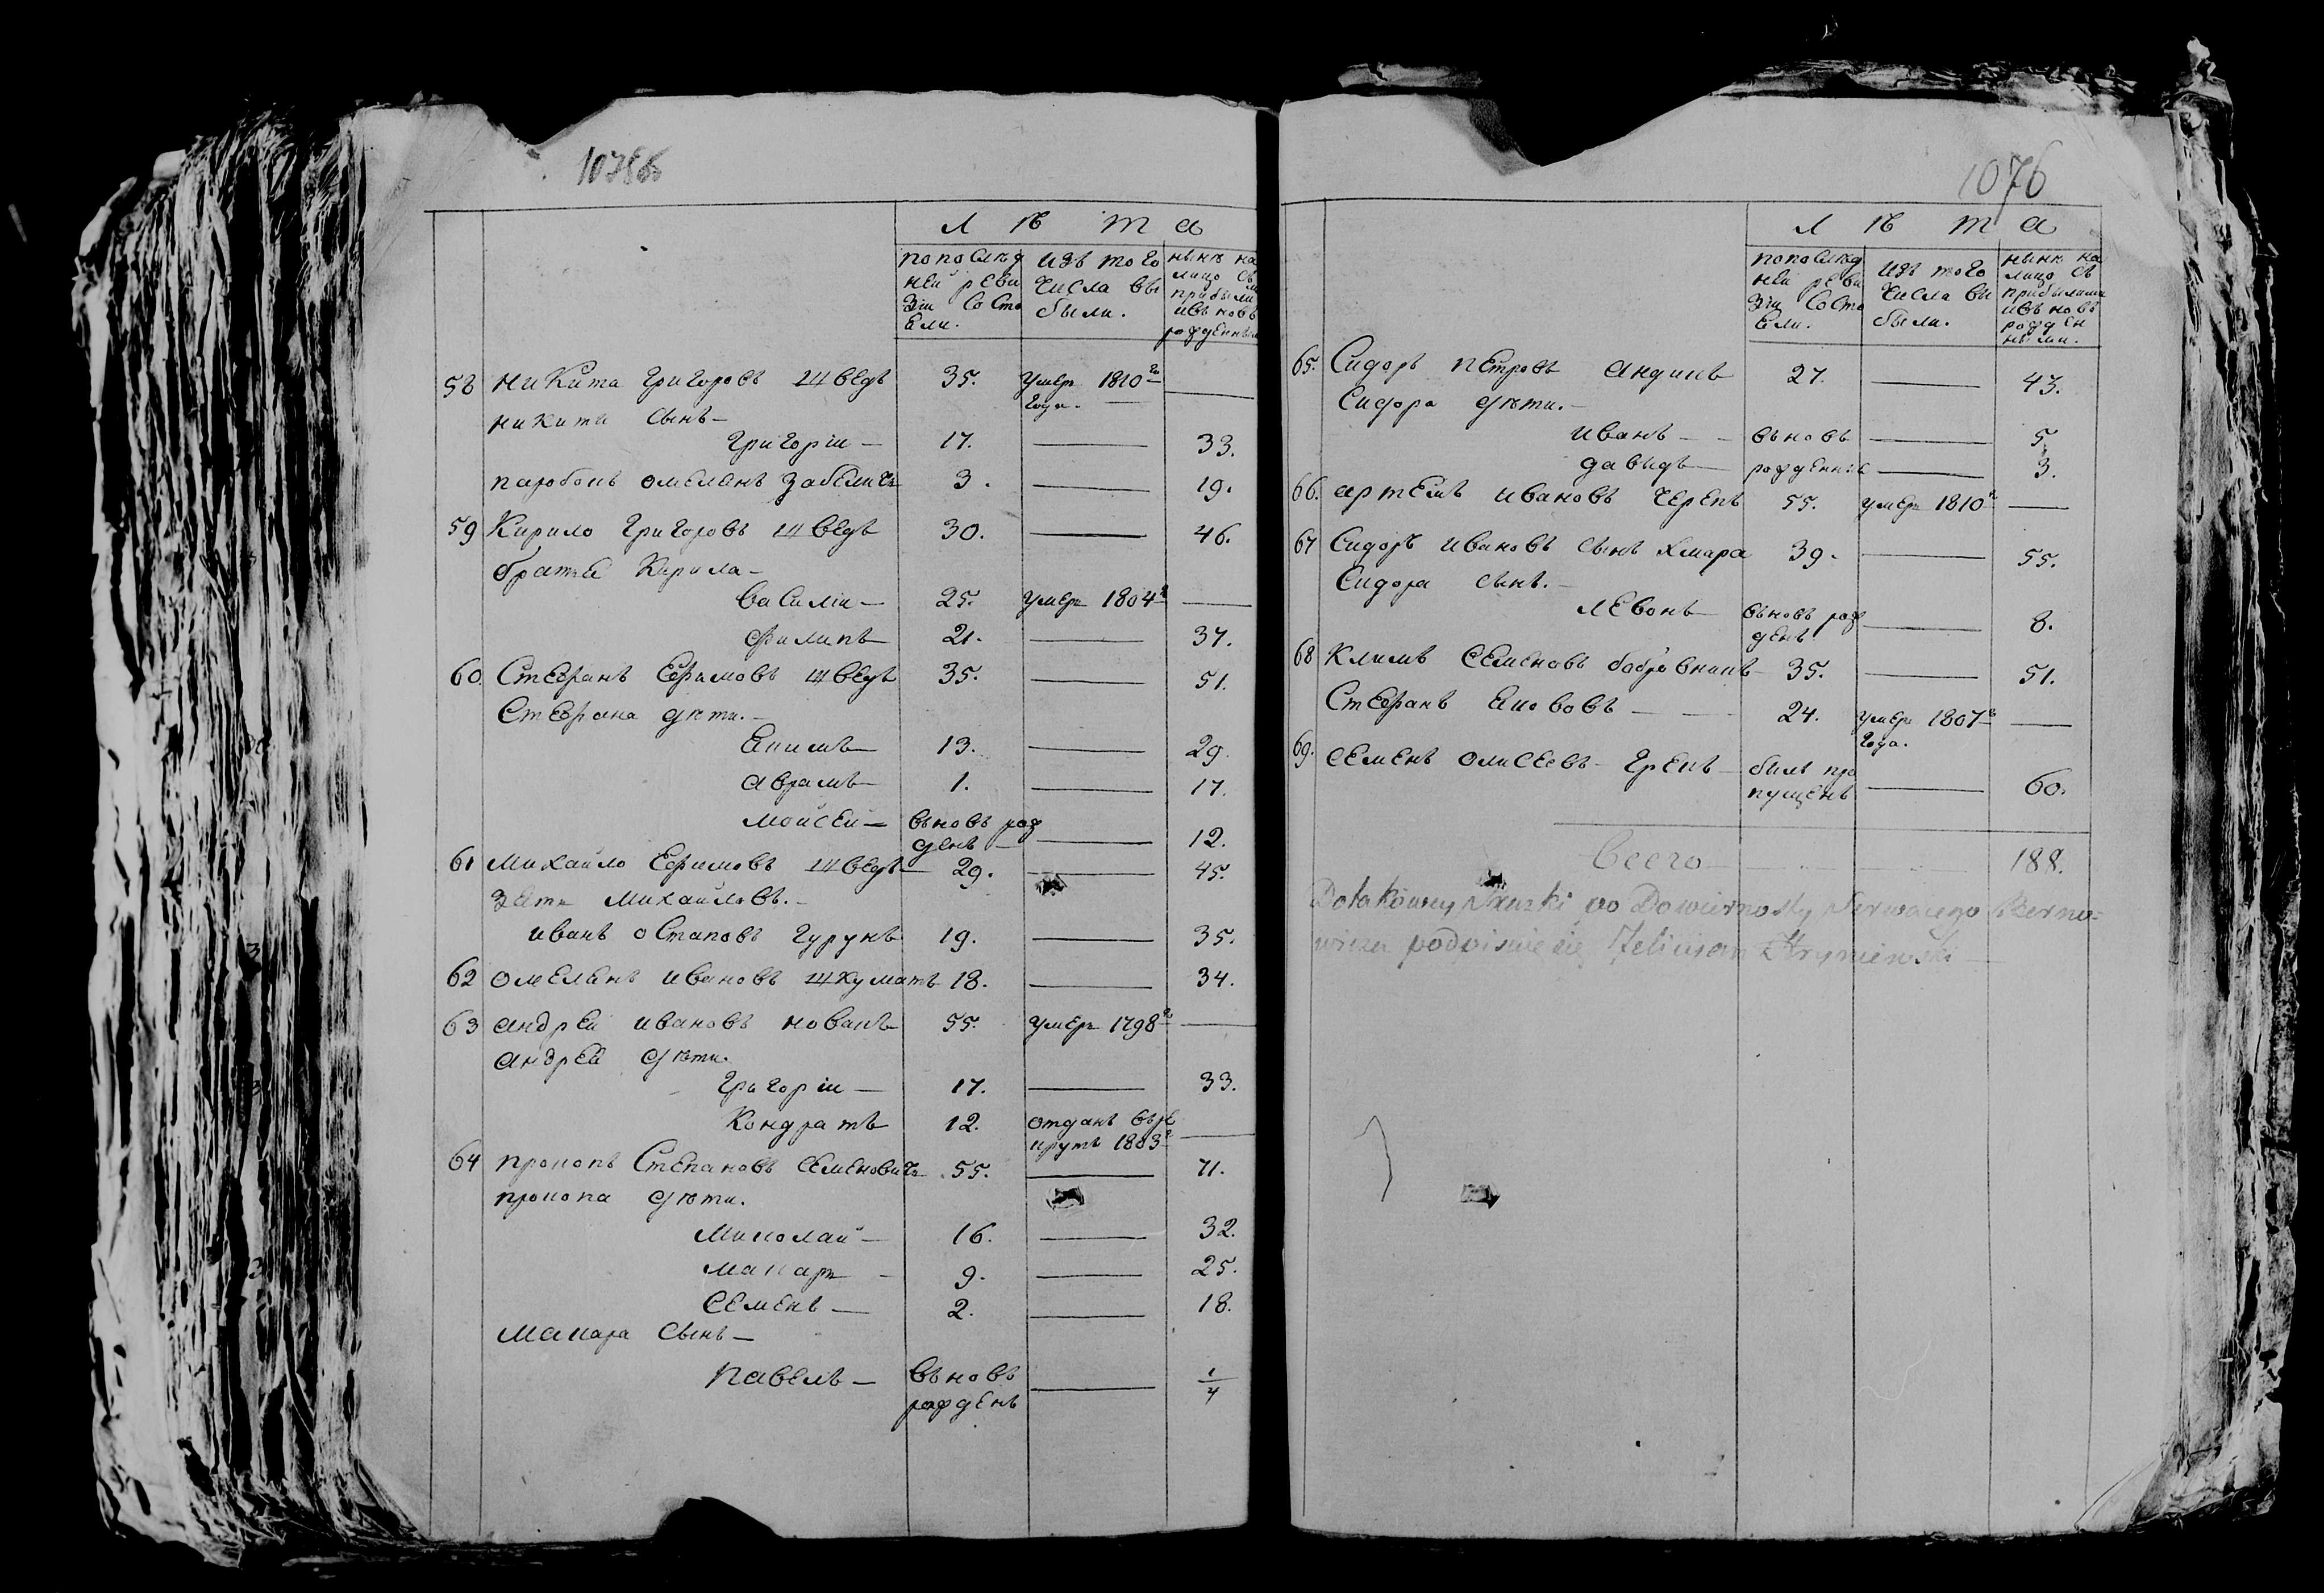 1075об
Л ѣ т а
по послѣд ней реви зіи состо ели.
изъ того числа вы были.
нынѣ на лицо съ прибылими и въ новѣ рожденными
58 Никита Григоровъ Шведъ 35. умеръ 1810го года. —
Никиты сынъ —
Григорій — 17. — 33.
паробокъ Омелянъ Забеличъ 3. — 19.
59 Кирило Григоровъ Шведъ 30. — 46.
братья Кирила —
Василій — 25. умеръ 1804г —
Филипъ — 21. — 37.
60. Стефанъ Ефимовъ Шведъ 35. — 51.
Стефана дѣти. —
Екимъ — 13. — 29
Аврамъ — 1. — 17.
Мойсей — вьновь рож денъ — 12.
61 Михайло Ефимовъ Шведъ — 29. — 45.
Зять Михайловъ. —
Иванъ Остаповъ Гурунъ 19. — 35.
62 Омелянъ Ивановъ Шкуматъ 18. — 34.
63 Андрей Ивановъ Новакъ 55. умеръ 1798го —
Андрея дѣти.
Григорій — 17. — 33.
Кондратъ 12. отданъ въ ре крутъ 1803г —
64 Прокопъ Степановъ Семеновичъ 55. — 71.
Прокопа дѣти.
Миколай — 16. — 32.
Макаръ — 9. — 25.
Семенъ — 2. — 18.
Макара сынъ —
Павелъ — вьновь рожденъ — 1/4
1076
Л ѣ т а
по послѣд ней реви зіи состо ели.
изъ того числа вы были.
нынѣ на лицо съ прибылими и въ новѣ рожден ными.
65. Сидоръ Петровъ 27. — 43.
Сидора дѣти. —
Иванъ — вьновь — 5
Давыдъ — рожденные — 3.
66. Артемъ Ивановъ Черепъ 55. умеръ 1810г —
67 Сидоръ Ивановъ сынъ Хмара 39. — 55.
Сидора сынъ. —
Левонъ — вьновь рож денъ — 8.
68 Климъ Семеновъ Бобровникъ 35. — 51.
Стефанъ Якововъ — 24. умеръ 1807г года. —
69. Семенъ Олисеевъ — былъ про пущенъ — 60.
Всего — 188.
Dotakowey Skazki po Dowiernosty
podpisuie się